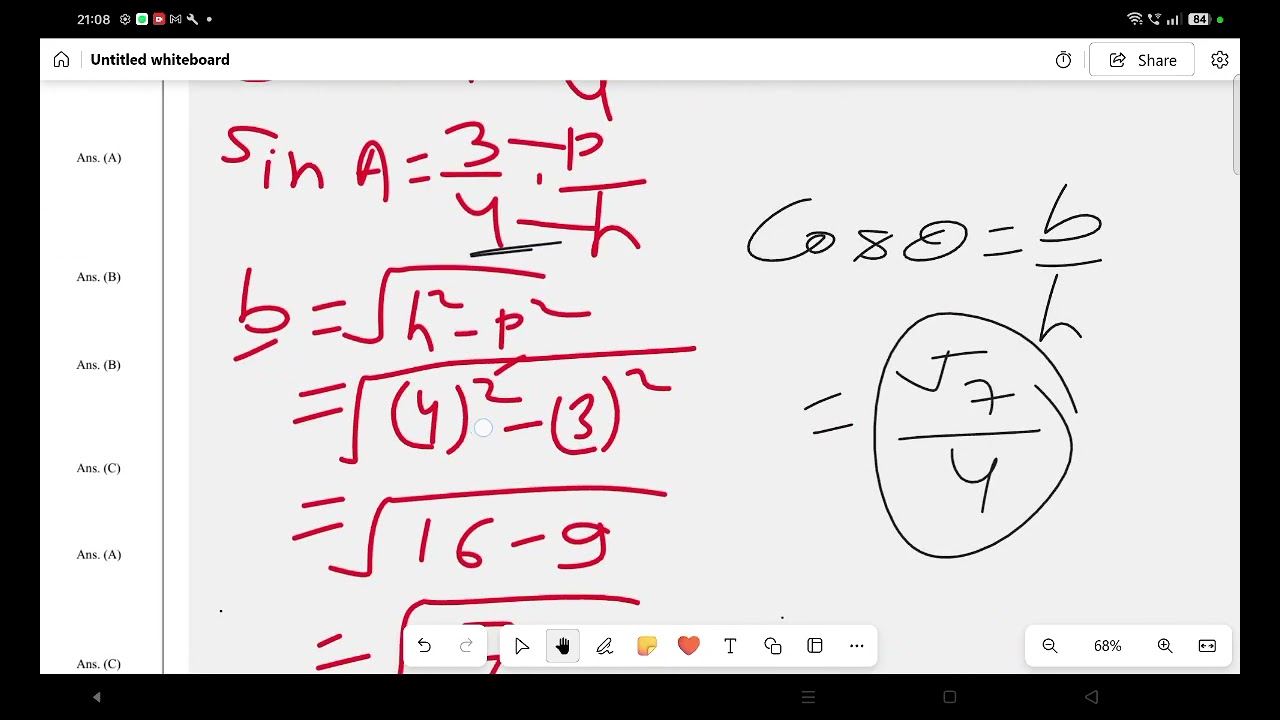 21:08
84
Untitled whiteboard
Share
Ans. (A)
Ans. (B)
Ans. (B)
Ans. (C)
Ans. (A)
Ans. (C)
sin A = 3/4 . p/h
b = √h² - p²
= √(4)² - (3)²
= √16 - 9
= √7
Cos θ = b/h
= √7/4
T
68%